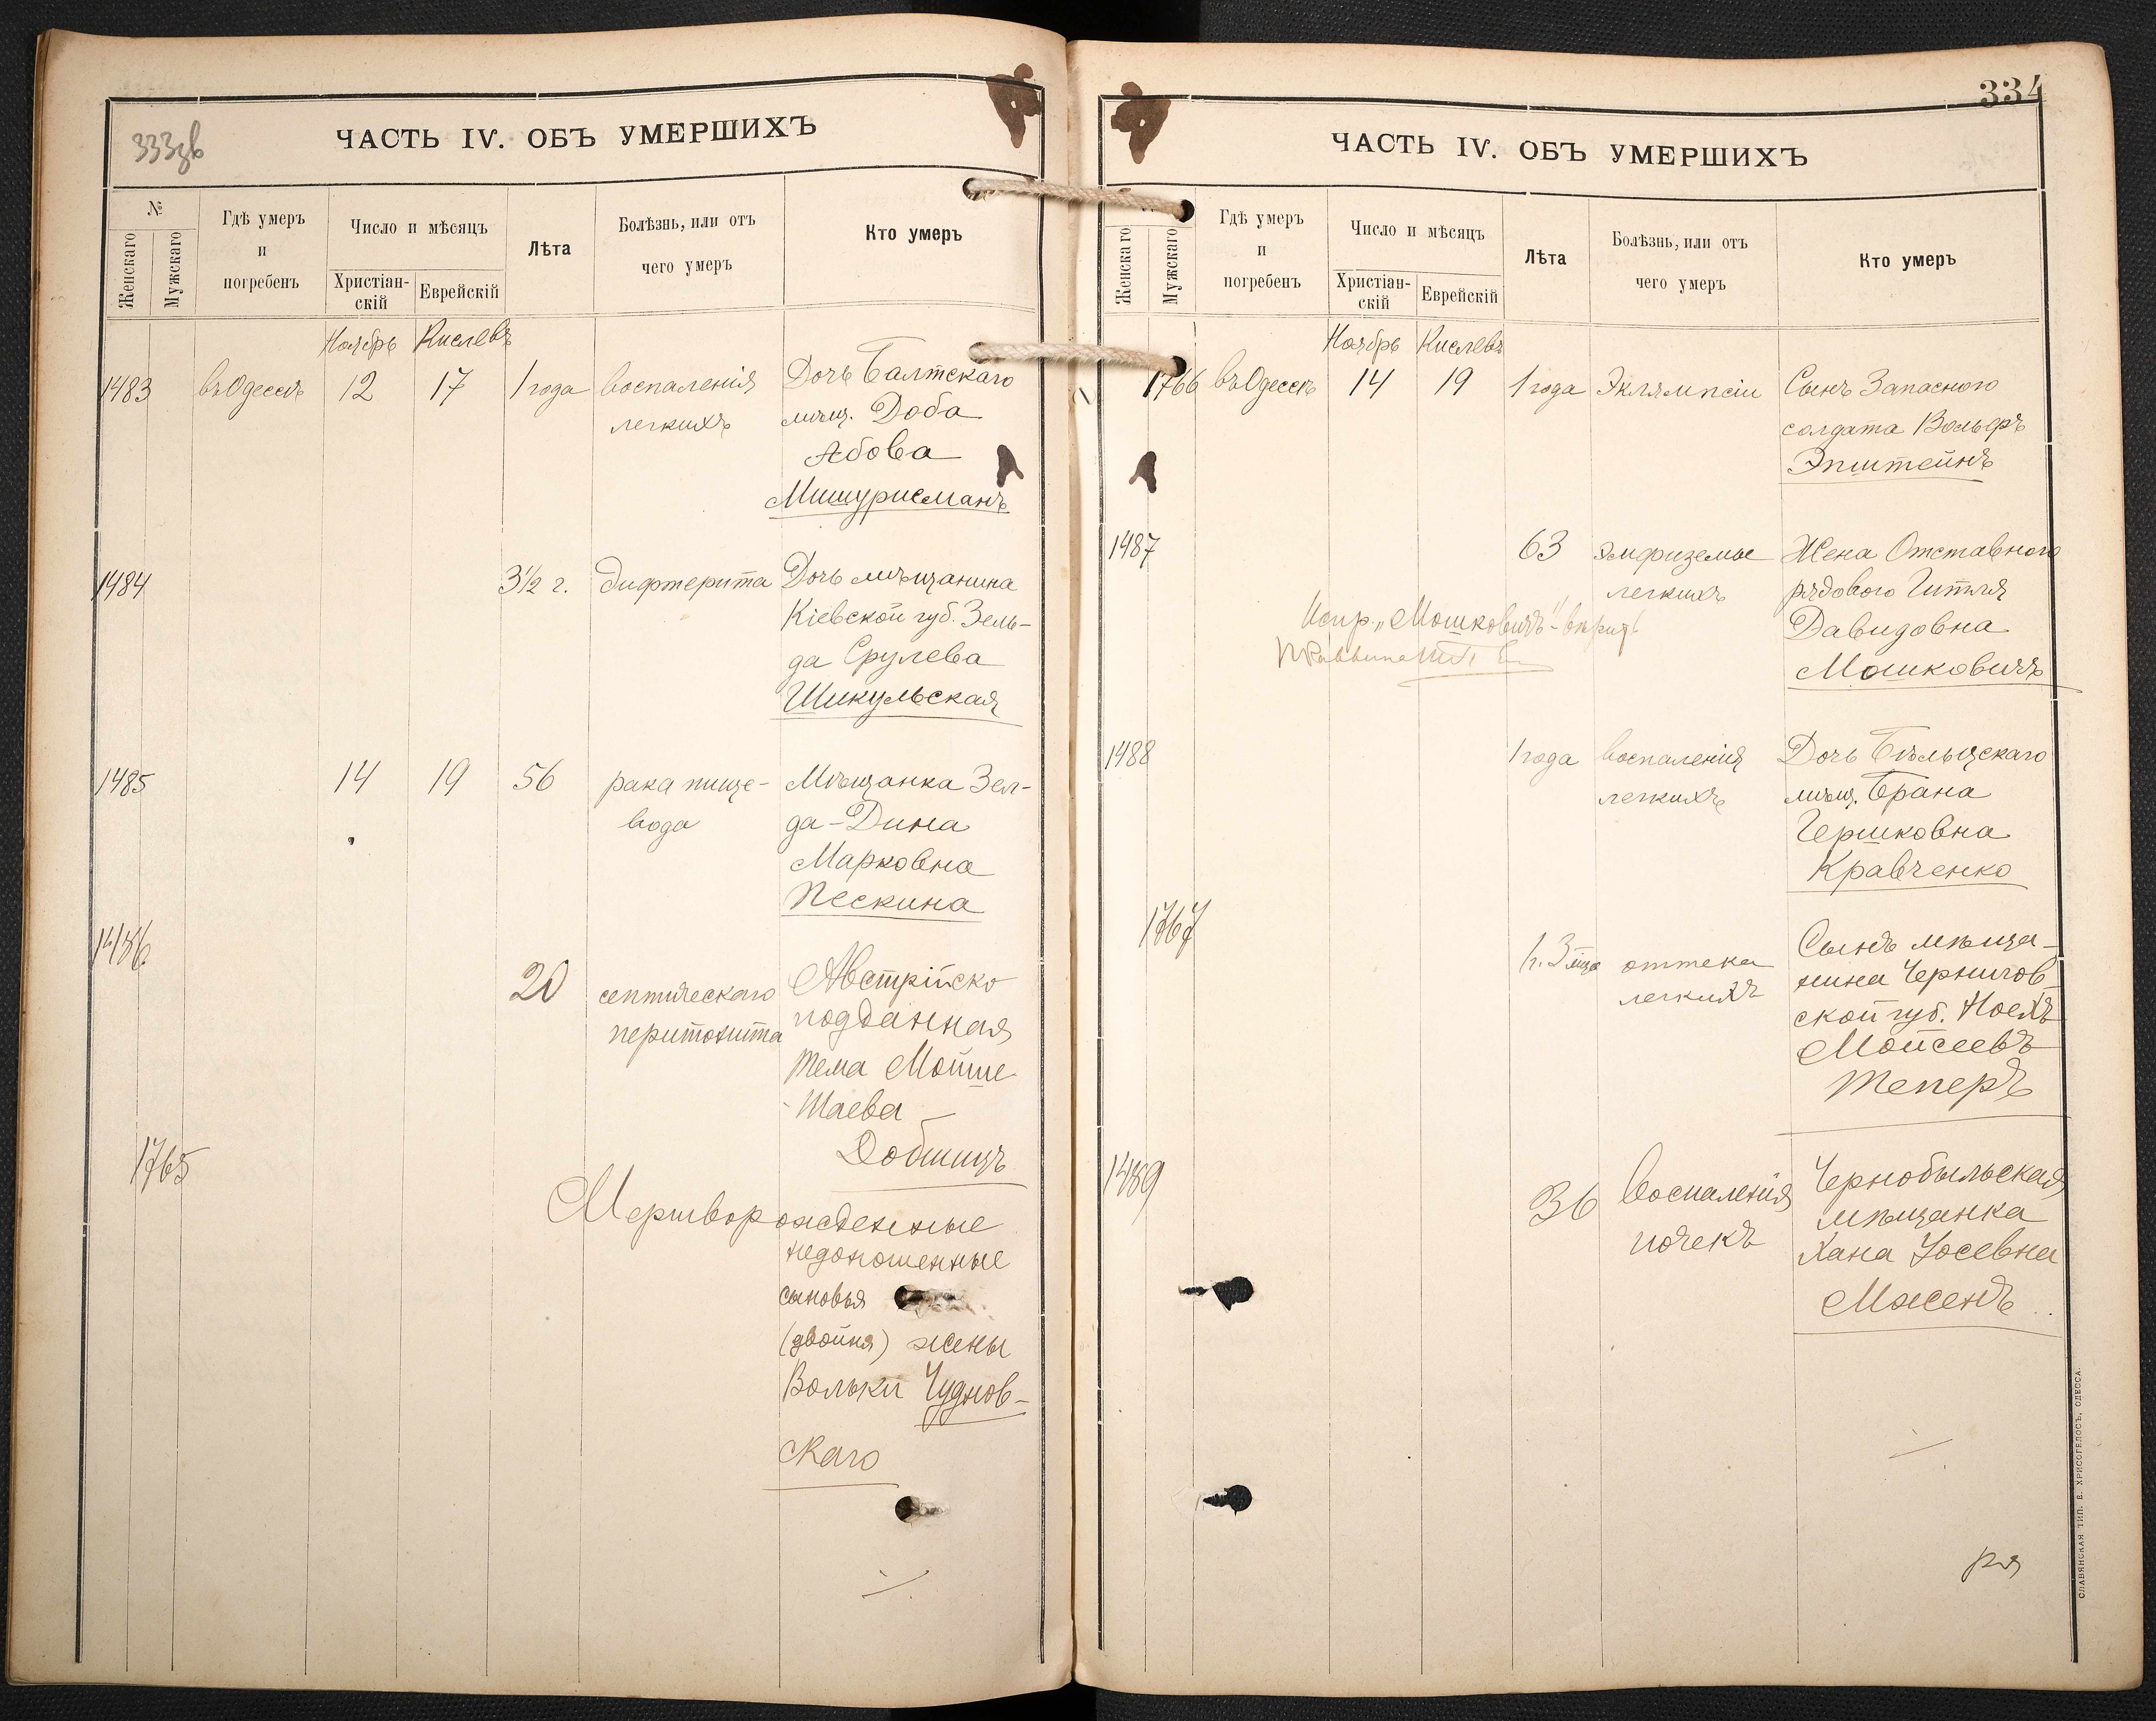 333зв
ЧАСТЬ IV. ОБЪ УМЕРШИХЪ
№
Женскаго
Мужскаго
Гдѣ умеръ
и
погребенъ
Число и мѣсяцъ
Христіан-
скій
Еврейскій
Лѣта
Болѣзнь, или отъ
чего умеръ
Кто умеръ
Ноябрь Кислевъ
1483 въ Одессѣ 12 17 1 года воспаленія Дочь Балтскаго
легкихъ мѣщ. Доба
Абова
Мишурисманъ
1484 3½ г. дифтерита Дочь мѣщанина
Кіевской губ. Зель-
да Срулева
Шикульская
1485 14 19 56 рака пище- Мѣщанка Зел-
вода да-Дина
Марковна
Пескина
1486 20 септическаго Австрійско
перитонита подданная
Тема Мойше
-Шаева
Добшицъ
1765
Мертворожденные
недоношенные
сыновья
(двойня) жены
Вольки Чуднов-
скаго
334
ЧАСТЬ IV. ОБЪ УМЕРШИХЪ
Женскаго
Мужскаго
Гдѣ умеръ
и
погребенъ
Число и мѣсяцъ
Христіан-
скій
Еврейскій
Лѣта
Болѣзнь, или отъ
чего умеръ
Кто умеръ
Ноябрь Кислевъ
1766 въ Одессѣ 14 19 1 года Эклямпсіи Сынъ Запаснаго
солдата Вольфъ
Эпштейнъ
1487 63 эмфиземы Жена Отставного
легкихъ рядового Гитля
Испр. „Мошковичъ" Давидовна
Мошковичъ
1488 1 года воспаленія Дочь Бѣльцскаго
легкихъ мѣщ. Брана
Гершковна
Кравченко
1767 1 г. 3 мца оттека Сынъ мѣща-
легкихъ нина Чернигов-
ской губ. Ноехъ
Мойсеевъ
Теперъ
1489 36 воспаленія Чернобыльская
почекъ мѣщанка
Хана Іосевна
Мженъ
СЛАВЯНСКАЯ ТИП. Е. ХРИСОГЕЛОСЪ, ОДЕССА.